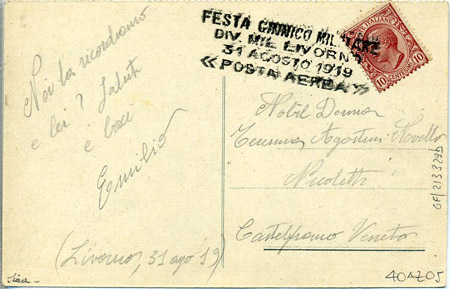 FESTA GINNICO MILITARE
DIV. MIL LIVORNO
31 AGOSTO 1919
«POSTA AEREA»
POSTE ITALIANE
10 CENT. 10
Noi la ricordiamo
e lei? Saluti
e baci
Emilio
(Livorno, 31 ago '19)
Nobil Donna
Agostini Novello
Nicoletti
Castelfranco Veneto
GF/2133295
404205